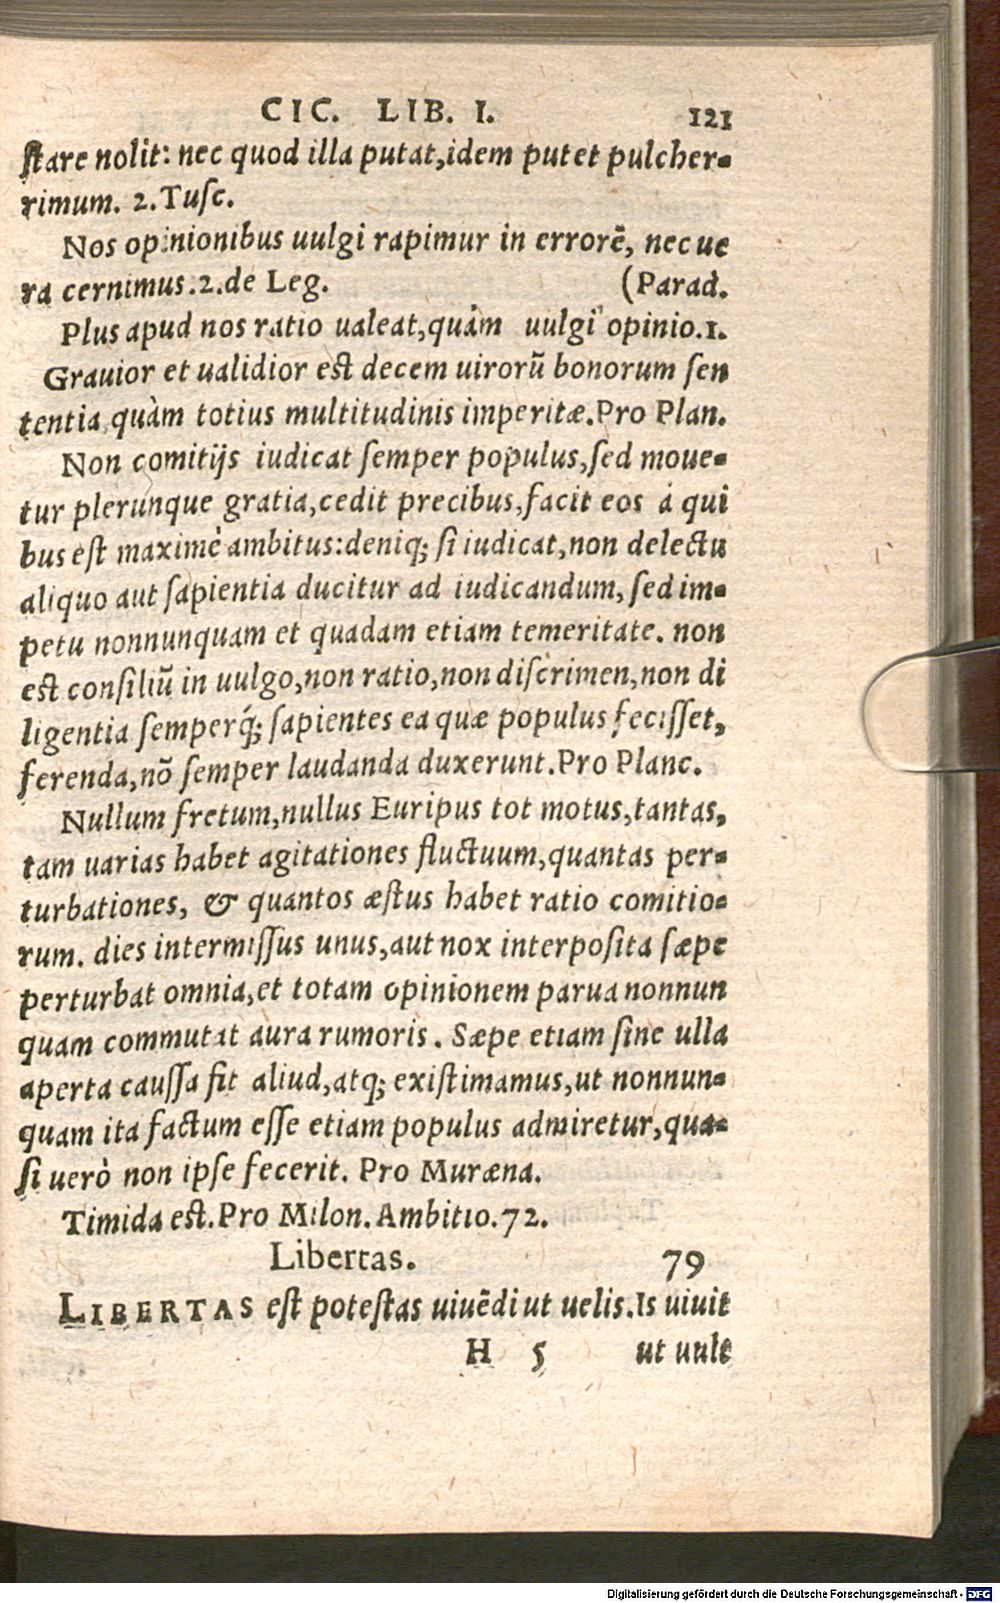 CIC. LIB. I. 121
ſtare nolit: nec quod illa putat,idem putet pulcher-
rimum. 2.Tuſc.
Nos opinionibus uulgi rapimur in errorē, nec ue
ra cernimus.2.de Leg. (Parad.
Plus apud nos ratio ualeat,quàm uulgi opinio.1.
Grauior et ualidior eſt decem uirorū bonorum ſen
tentia quàm totius multitudinis imperitæ.Pro Plan.
Non comitijs iudicat ſemper populus,ſed moue-
tur plerunque gratia,cedit precibus,facit eos à qui
bus eſt maximè ambitus:deniq; ſi iudicat,non delectu
aliquo aut ſapientia ducitur ad iudicandum, ſed im-
petu nonnunquam et quadam etiam temeritate. non
eſt conſiliū in uulgo,non ratio,non diſcrimen,non di
ligentia ſemperq́; ſapientes ea quæ populus feciſſet,
ferenda,nō ſemper laudanda duxerunt.Pro Planc.
Nullum fretum,nullus Euripus tot motus,tantas,
tam uarias habet agitationes fluctuum,quantas per-
turbationes, & quantos æſtus habet ratio comitio-
rum. dies intermiſſus unus,aut nox interpoſita ſæpe
perturbat omnia,et totam opinionem parua nonnun
quam commutat aura rumoris. Sæpe etiam ſine ulla
aperta cauſſa fit aliud,atq; exiſtimamus,ut nonnun-
quam ita factum eſſe etiam populus admiretur,qua-
ſi uerò non ipſe fecerit. Pro Muræna.
Timida eſt.Pro Milon.Ambitio.72.
Libertas. 79
LIBERTAS eſt poteſtas uiuēdi ut uelis.Is uiuit
H 5 ut uult
Digitalisierung gefördert durch die Deutsche Forschungsgemeinschaft - DFG